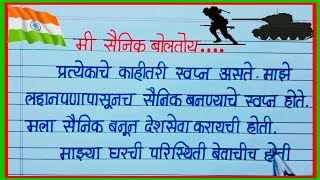 मी सैनिक बोलतोय....
प्रत्येकाचे काहीतरी स्वप्न असते. माझे
लहानपणापासूनच सैनिक बनण्याचे स्वप्न होते.
मला सैनिक बनून देशसेवा करायची होती.
माझ्या घरची परिस्थिती बेताचीच होती